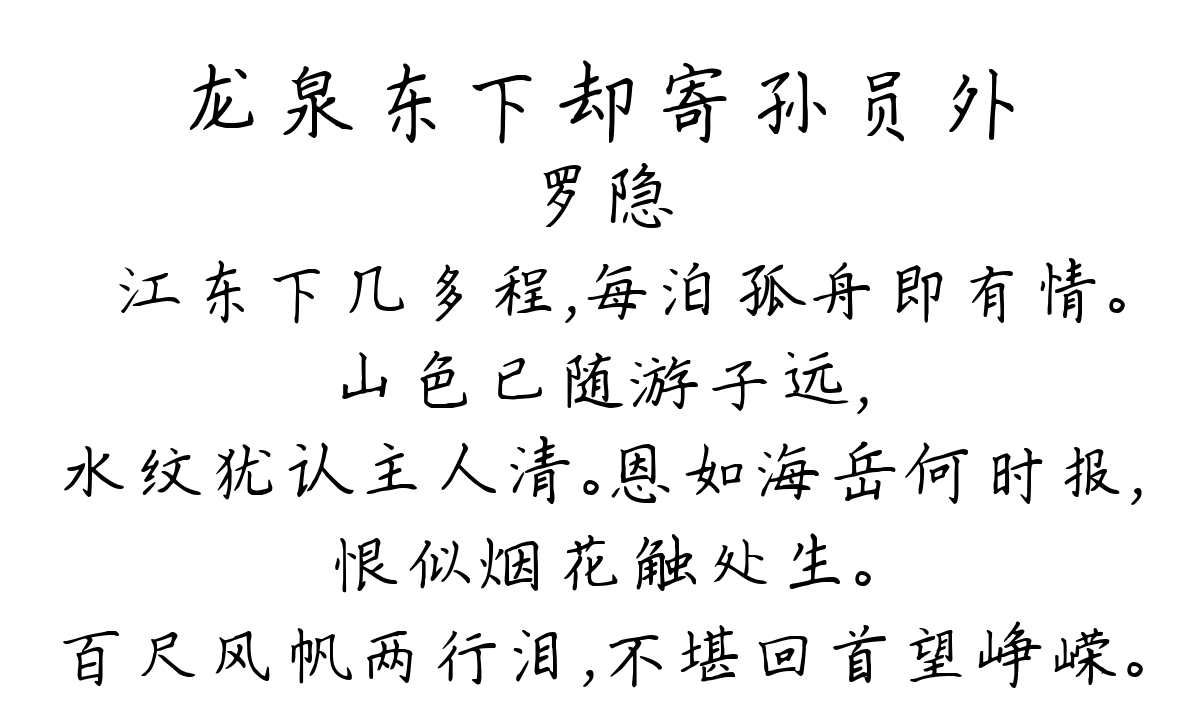 龙泉东下却寄孙员外
罗隐
江东下几多程,每泊孤舟即有情。
山色已随游子远,
水纹犹认主人清。恩如海岳何时报,
恨似烟花触处生。
百尺风帆两行泪,不堪回首望峥嵘。